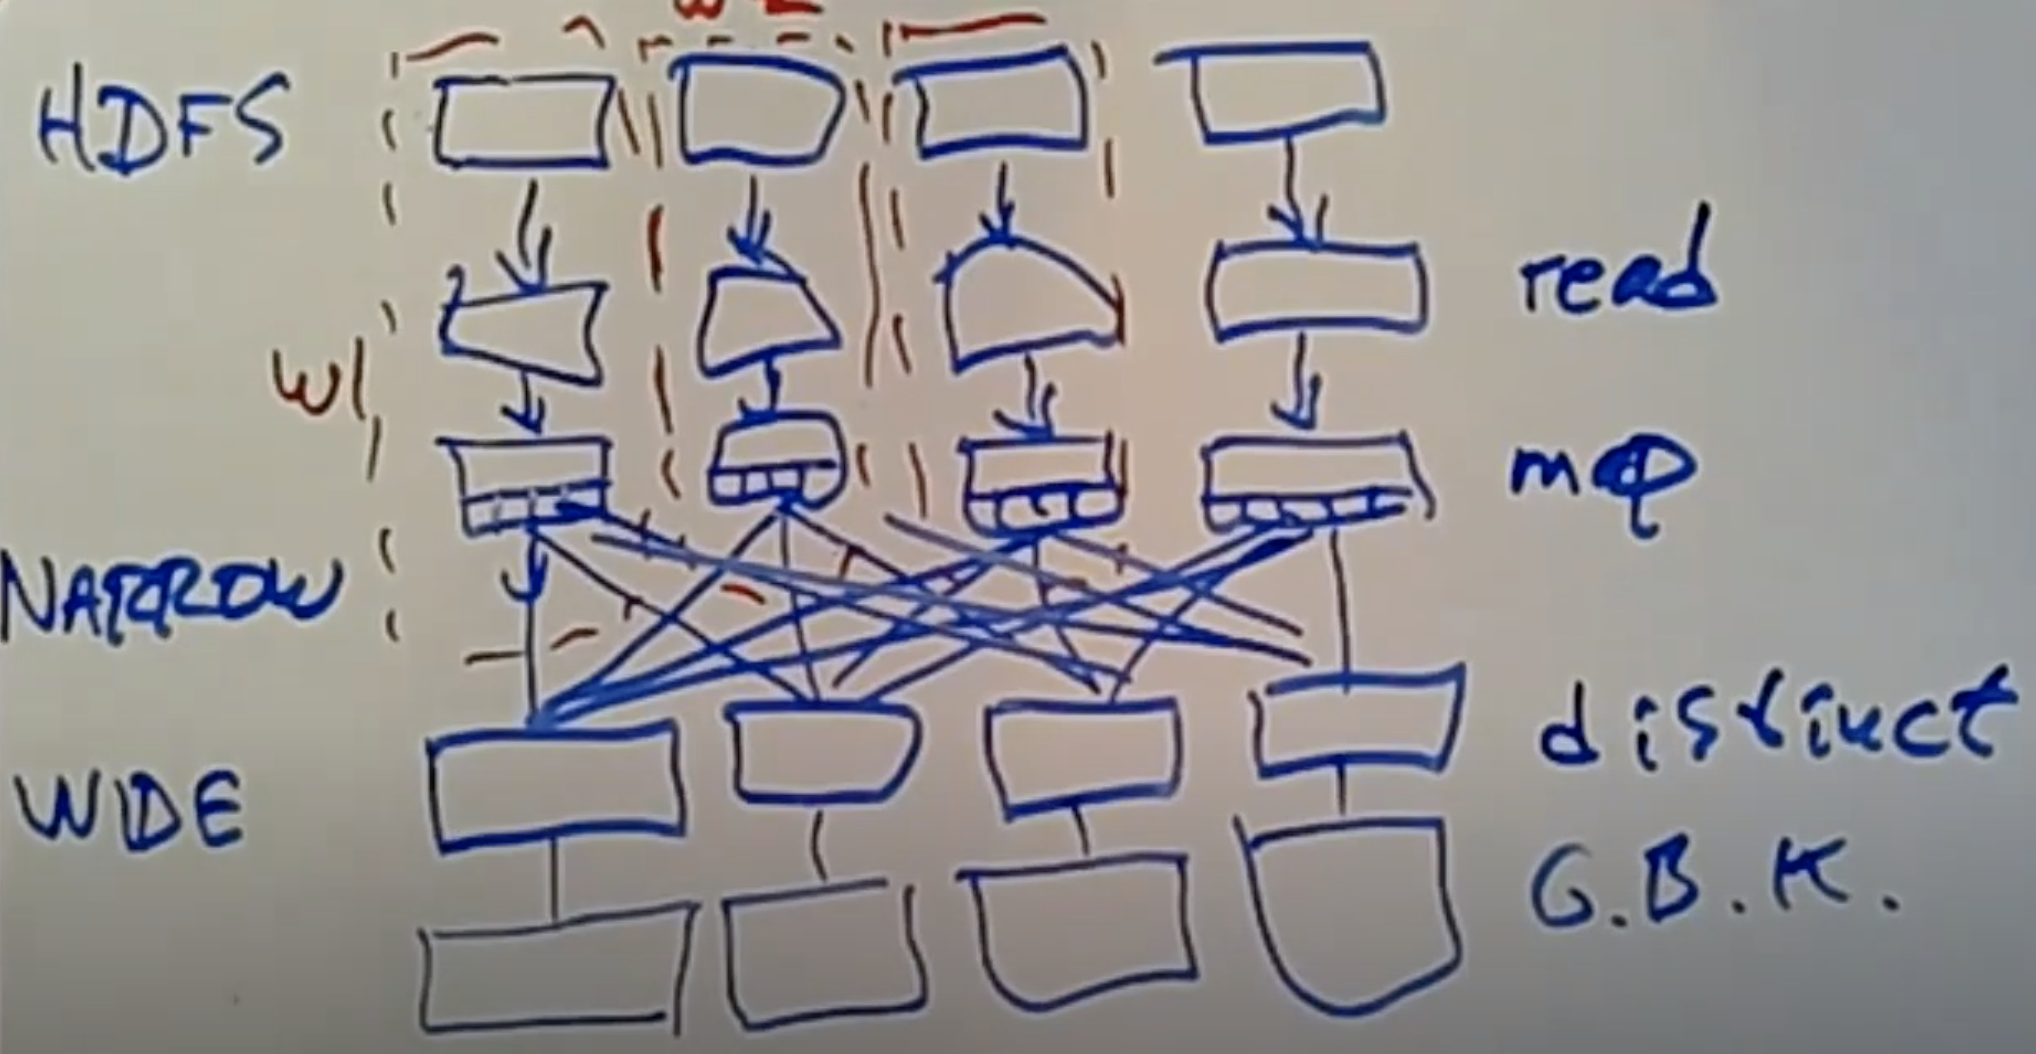 HDFS
read
W1
map
NARROW
distinct
WIDE
G.B.K.